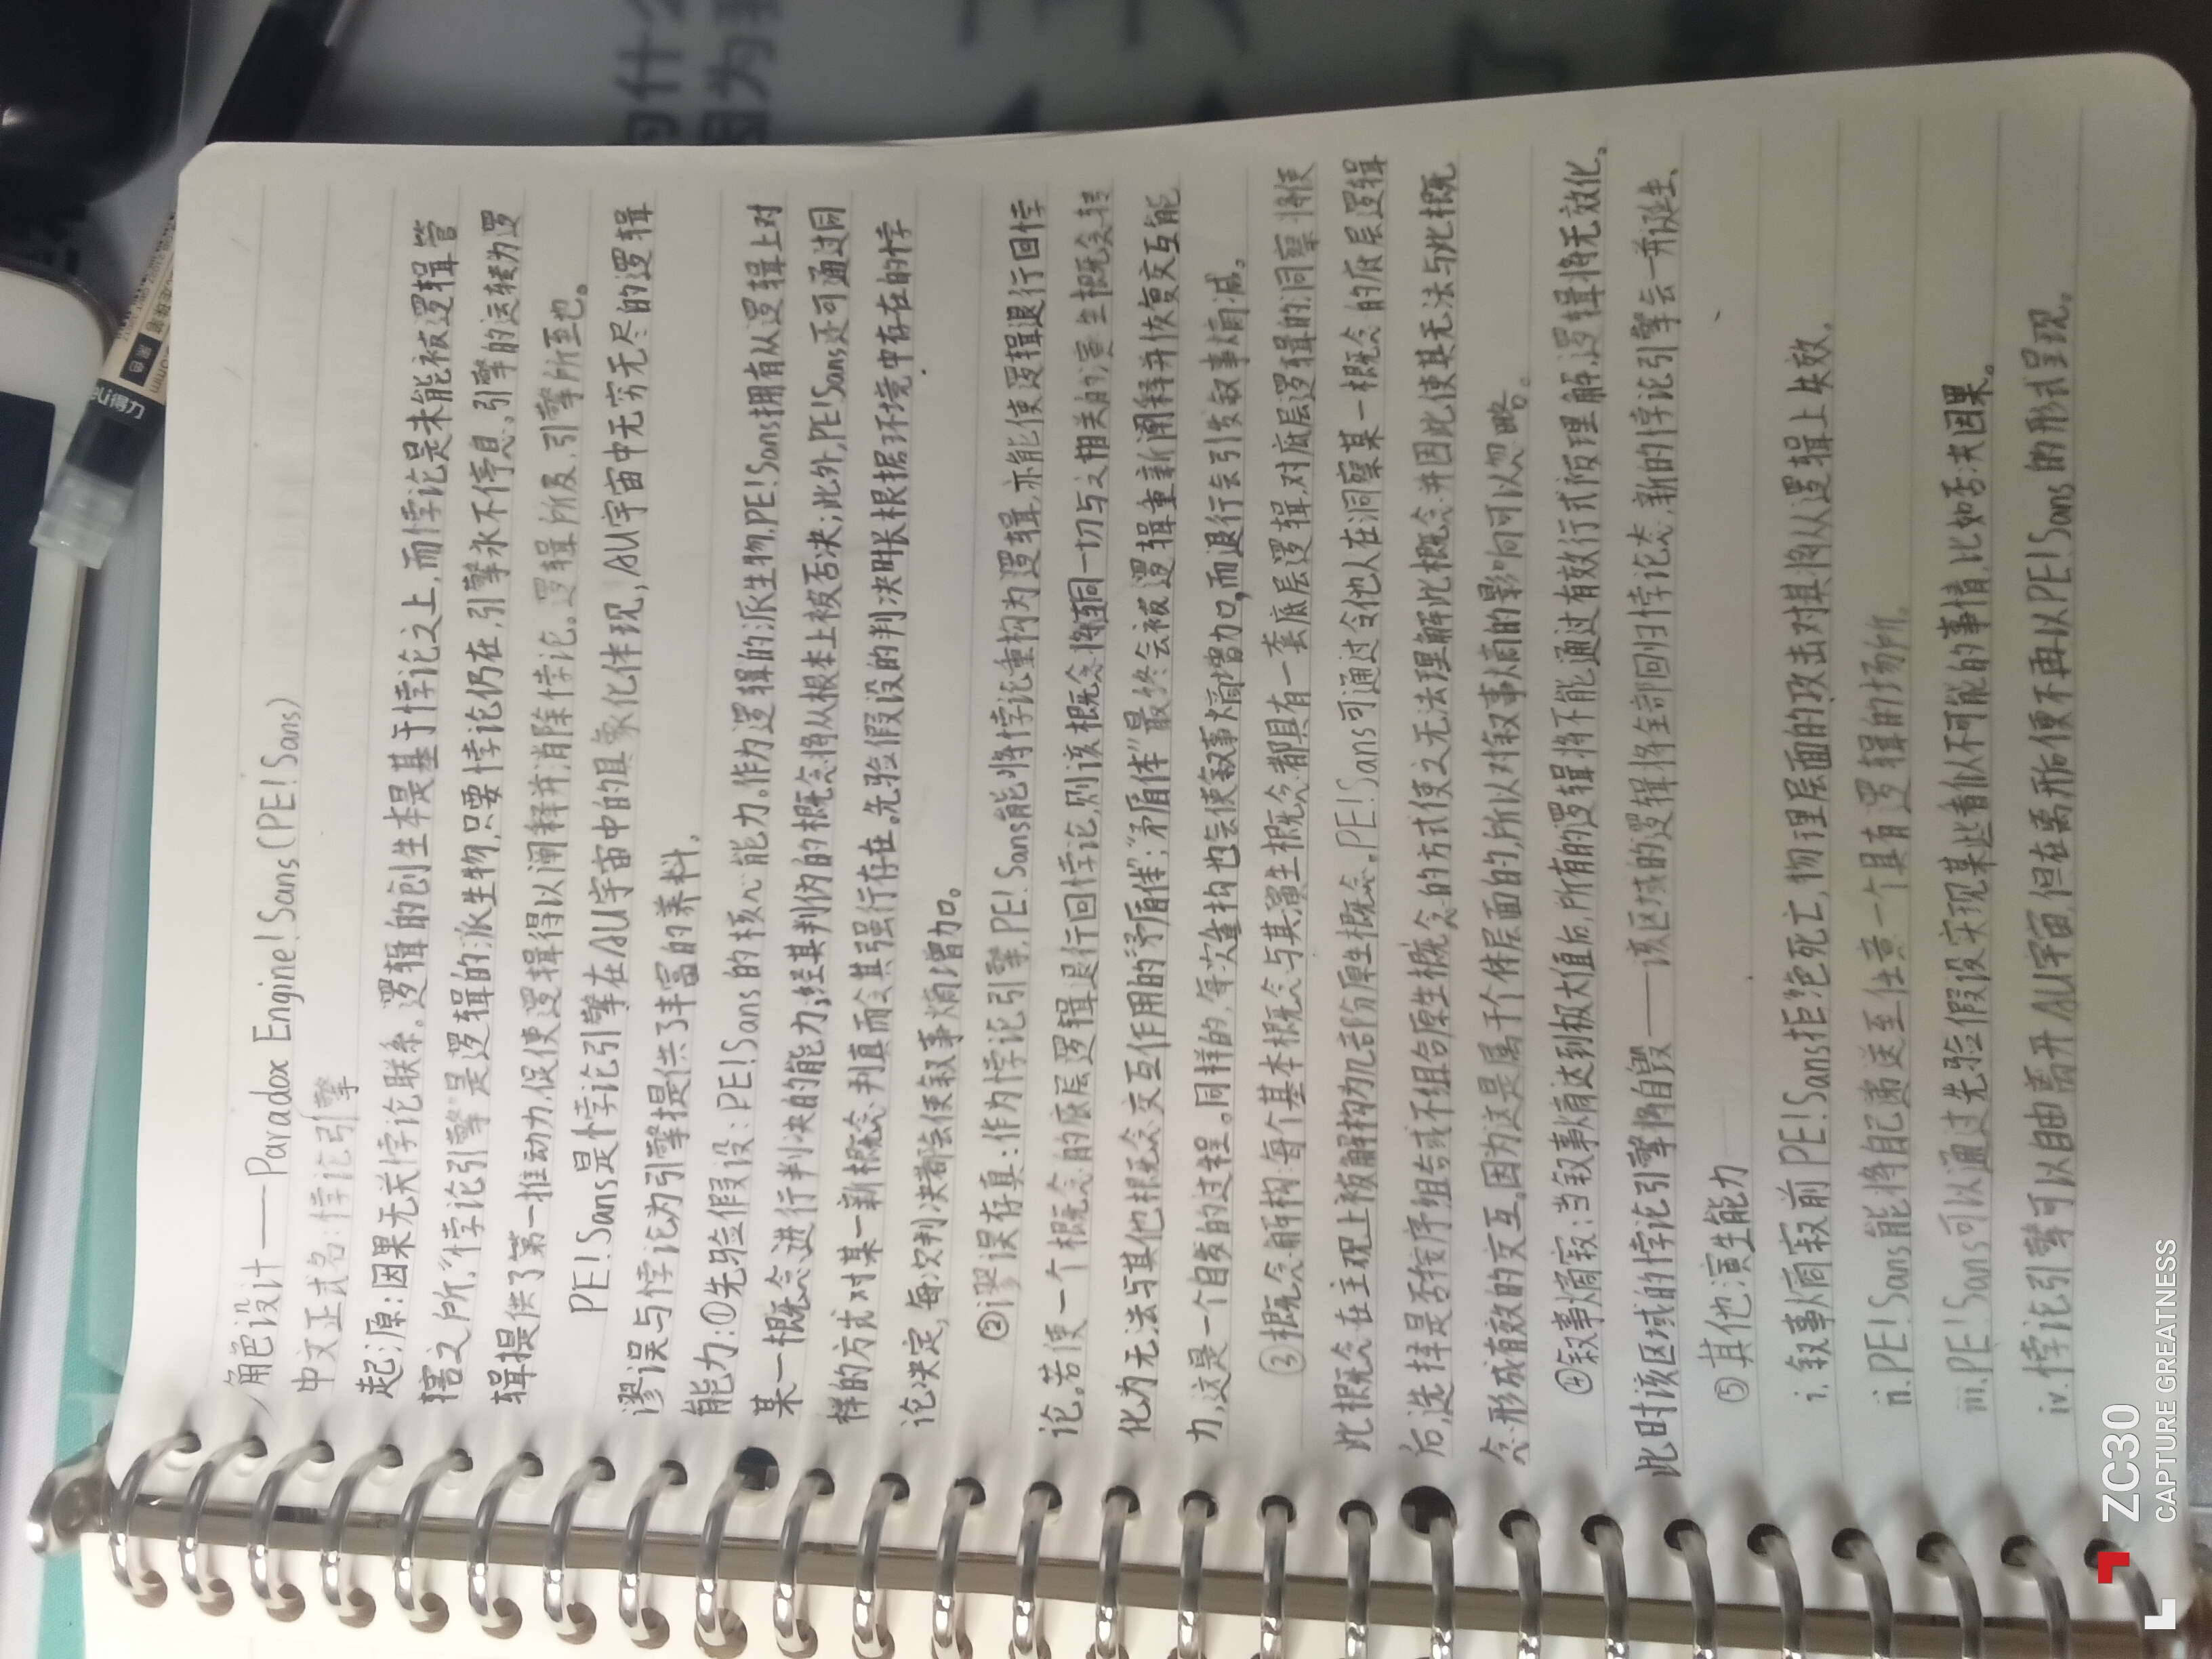 角色设计——Paradox Engine!Sans(PE!Sans)
中文正式名:悖论引擎
起源:因果无关悖论联系。逻辑的创生本是基于悖论之上,而悖论是未能被逻辑管
辖之所,"悖论引擎"是逻辑的派生物,只要悖论仍在,引擎永不停息。引擎的运转为逻
辑提供了第一推动力,促使逻辑得以阐释并消除悖论。逻辑所及,引擎所至也。
PE!Sans是悖论引擎在AU宇宙中的具象化体现,AU宇宙中无穷无尽的逻辑
谬误与悖论为引擎提供了丰富的养料。
能力:①先验假设:PE!Sans的核心能力。作为逻辑的派生物,PE!Sans拥有从逻辑上对
某一概念进行判决的能力;经其判伪的概念将从根本上被否决;此外,PE!Sans还可通过同
样的方式对某一新概念判真而令其强行存在。先验假设的判决时长根据环境中存在的悖
论决定,每次判决都会使叙事熵增加。
②谬误存真:作为悖论引擎,PE!Sans能将悖论重构为逻辑,亦能使逻辑退行回悖
论。若使一个概念的底层逻辑退行回悖论,则该概念将连同一切与之相关的演生概念转
化为无法与其他概念交互作用的"矛盾体";"矛盾体"最终会被逻辑重新阐释并恢复交互能
力,这是一个自发的过程。同样的,每次重构也会使叙事熵增加,而退行会引发叙事熵减。
③概念解构:每个基本概念与其演生概念都具有一套底层逻辑,对底层逻辑的洞察将使
此概念在主观上被解构为几部份原生概念。PE!Sans可通过令他人在洞察某一概念的底层逻辑
后,选择是否按序组合或不组合原生概念的方式使之无法理解此概念并因此使其无法与此概
念形成有效的交互。因为这是属于个体层面的,所以对叙事熵的影响可以忽略。
④叙事熵寂:当叙事熵达到极大值后,所有的逻辑将不能通过有效行式陌理解,逻辑将无效化。
此时该区域的悖论引擎将自毁——该区域的逻辑将全部回归悖论态,新的悖论引擎会一并诞生、
⑤其他演生能力
i.叙事熵寂前PE!Sans拒绝死亡,物理层面的攻击对其将从逻辑上失效。
ii.PE!Sans能将自己递送至任意一个具有逻辑的场所。
iii.PE!Sans可以通过先验假设实现某些看似不可能的事情,比如否决因果。
iv.悖论引擎可以自由离开AU宇宙,但在离开后便不再以PE!Sans的形式呈现。
得力
黑色
何什么
因为我
了
ZC30
CAPTURE GREATNESS